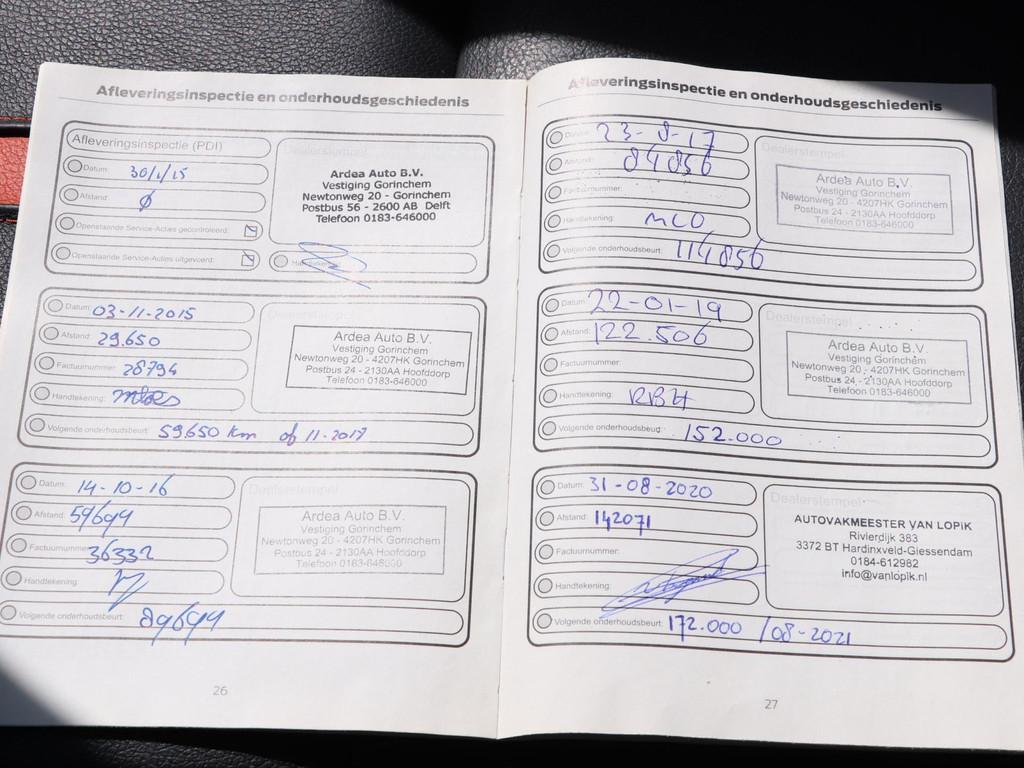 Afleveringsinspectie en onderhoudsgeschiedenis
Afleveringsinspectie (PDI)
Datum: 30/1/15
Afstand: ϕ
Openstaande Service-Acties gecontroleerd:
Openstaande Service-Acties uitgevoerd:
Dealerstempel
Ardea Auto B.V.
Vestiging Gorinchem
Newtonweg 20 - Gorinchem
Postbus 56 - 2600 AB Delft
Telefoon 0183-646000
Datum: 03-11-2015
Afstand: 29.650
Factuurnummer: 28794
Handtekening:
Volgende onderhoudsbeurt: 59.650 km of 11-2017
Dealerstempel
Ardea Auto B.V.
Vestiging Gorinchem
Newtonweg 20 - 4207HK Gorinchem
Postbus 24 - 2130AA Hoofddorp
Telefoon 0183-646000
Datum: 14-10-16
Afstand: 59694
Factuurnummer: 36332
Handtekening:
Volgende onderhoudsbeurt: 89694
Dealerstempel
Ardea Auto B.V.
Vestiging Gorinchem
Newtonweg 20 - 4207HK Gorinchem
Postbus 24 - 2130AA Hoofddorp
Telefoon 0183-646000
26
Afleveringsinspectie en onderhoudsgeschiedenis
Datum: 23-8-17
Afstand: 84856
Factuurnummer:
Handtekening: MCO
Volgende onderhoudsbeurt: 114856
Dealerstempel
Ardea Auto B.V.
Vestiging Gorinchem
Newtonweg 20 - 4207HK Gorinchem
Postbus 24 - 2130AA Hoofddorp
Telefoon 0183-646000
Datum: 22-01-19
Afstand: 122.506
Factuurnummer:
Handtekening: RBH
Volgende onderhoudsbeurt: 152.000
Dealerstempel
Ardea Auto B.V.
Vestiging Gorinchem
Newtonweg 20 - 4207HK Gorinchem
Postbus 24 - 2130AA Hoofddorp
Telefoon 0183-646000
Datum: 31-08-2020
Afstand: 142071
Factuurnummer:
Handtekening:
Volgende onderhoudsbeurt: 172.000 / 08-2021
Dealerstempel
AUTOVAKMEESTER VAN LOPIK
Rivierdijk 383
3372 BT Hardinxveld-Giessendam
0184-612982
info@vanlopik.nl
27